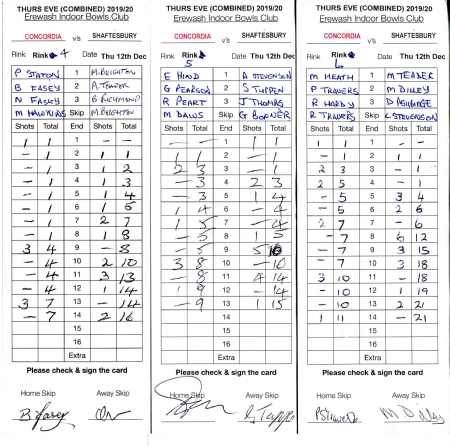 THURS EVE (COMBINED) 2019/20
Erewash Indoor Bowls Club
CONCORDIA v's SHAFTESBURY
Rink Rink 4 Date Thu 12th Dec
P STATON 1 M. BEIGHTON
B EASEY 2 A. TEPPER
N FASEY 3 B RICHMOND
M HAWKINS Skip M. BEIGHTON
Shots Total End Shots Total
1 1 1 - -
- 1 2 1 1
- 1 3 1 2
- 1 4 1 3
- 1 5 1 4
- 1 6 1 5
- 1 7 2 7
- 1 8 1 8
3 4 9 - 8
- 4 10 2 10
- 4 11 3 13
- 4 12 1 14
3 7 13 - 14
- 7 14 2 16
15
16
Extra
Please check & sign the card
Home Skip Away Skip
THURS EVE (COMBINED) 2019/20
Erewash Indoor Bowls Club
CONCORDIA v's SHAFTESBURY
Rink Rink 5 Date Thu 12th Dec
E HIND 1 A STEVENSON
G PEARSON 2 S TUPPEN
R PEART 3 J THOMAS
M DAWS Skip G BONNER
Shots Total End Shots Total
- - 1 1 1
1 1 2 - 1
2 3 3 - 1
- 3 4 2 3
- 3 5 1 4
1 4 6 - 4
1 5 7 - 4
- 5 8 1 5
- 5 9 5 10
3 8 10 - 10
- 8 11 4 14
1 9 12 - 14
- 9 13 1 15
14
15
16
Extra
Please check & sign the card
Home Skip Away Skip
THURS EVE (COMBINED) 2019/20
Erewash Indoor Bowls Club
CONCORDIA v's SHAFTESBURY
Rink Rink 6 Date Thu 12th Dec
M HEATH 1 M TEPPER
P TRAVERS 2 M DILLEY
R HARDY 3
R TRAVERS Skip L STEVENSON
Shots Total End Shots Total
1 1 1 - -
- 1 2 1 1
2 3 3 - 1
2 5 4 - 1
- 5 5 3 4
- 5 6 2 6
2 7 7 - 6
- 7 8 6 12
- 7 9 3 15
- 7 10 3 18
3 10 11 - 18
- 10 12 1 19
- 10 13 2 21
1 11 14 - 21
15
16
Extra
Please check & sign the card
Home Skip Away Skip
M Dilley